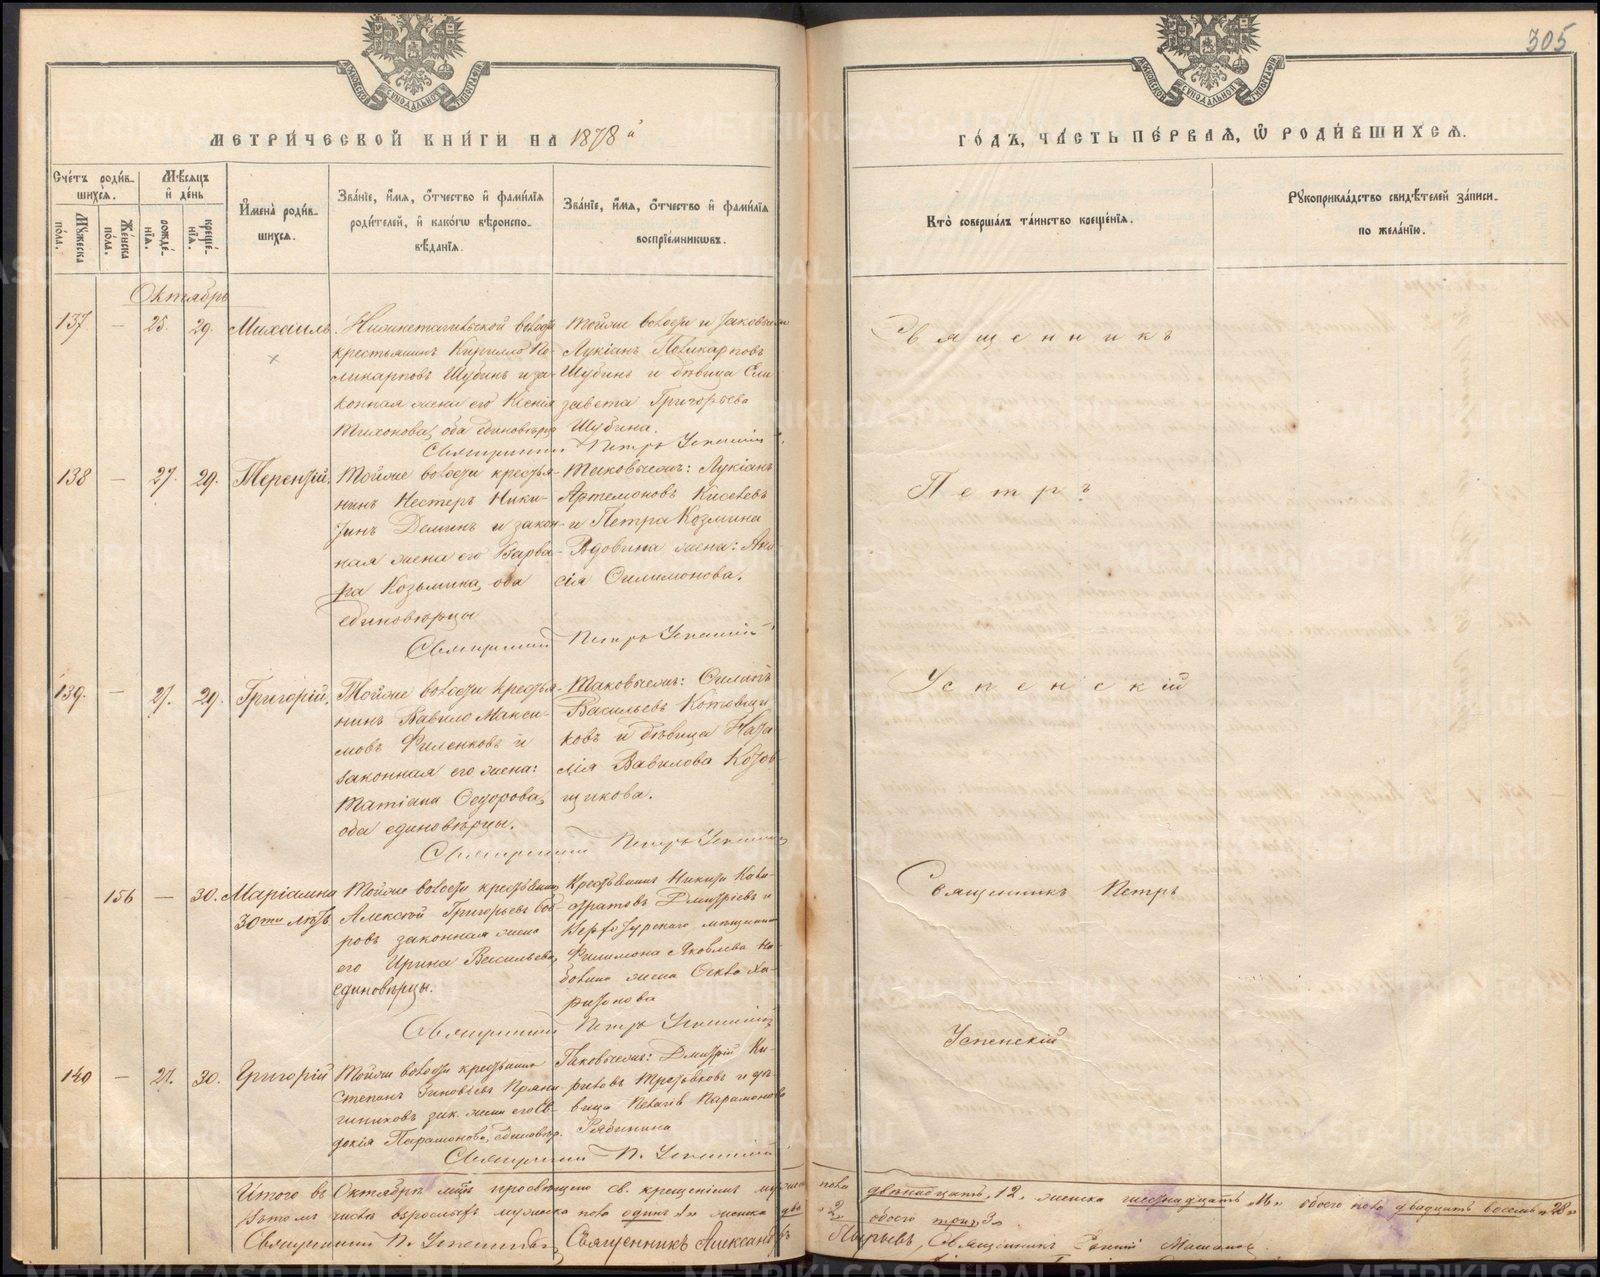 305
МЕТРИ́ЧЕСКОЙ КНИ́ГИ НА 1878 й
ГО́ДЪ, ЧА́СТЬ ПЕ́РВАѦ, Ѽ РОДИ́ВШИХСѦ.
Сче́тъ роди́в-
шихсѧ.
Мѣ́сѧцъ
и҆ де́нь
Мꙋ́жеска
по́ла.
Же́нска
по́ла.
рожде́-
нїѧ.
креще́-
нїѧ.
И҆мена̀ роди́в-
шихсѧ.
Зва́нїе, и҆́мѧ, о҆́тчество и҆ фами́лїѧ
роди́телей, и҆ како́гѡ вѣроиспо-
вѣ́данїѧ.
Зва́нїе, и҆́мѧ, о҆́тчество и҆ фами́лїѧ
воспрїе́мникѡвъ.
Кто̀ соверша́лъ та́инство креще́нїѧ.
Рꙋкоприкла́дство свидѣ́телей за́писи
по жела́нїю.
Октябрь
137 — 25. 29. Михаилъ
Нижнетагильской волости
крестьянинъ Кирилло По-
ликарповъ Шубинъ и за-
конная жена его Ксенія
Тихонова, оба единовѣрцы
Тойже волости и
Лукіанъ Поликарповъ
Шубинъ и дѣвица Ели
завета Григорьева
Шубина.
Священникъ
Священникъ Петръ Успенскій
138 — 27. 29. Терентій.
Тойже волости крестья-
нинъ Нестеръ Ники-
тинъ Деминъ и закон-
ная жена его Варва-
ра Козьмина, оба
единовѣрцы
Таковыежъ: Лукіанъ
Артемоновъ Киселевъ
и Петра Козмина
Вдовина жена: Ани
сія Филимонова.
Петръ
Священникъ Петръ Успенскій
139. — 27. 29. Григорій.
Тойже волости крестья-
нинъ Вавило Макси-
мовъ Филенковъ и
законная его жена:
Татіана Ѳедорова,
оба единовѣрцы.
Таковыежъ: Филипъ
Васильевъ
ковъ и дѣвица Ната
лія Вавилова
щикова.
Успенскій
Священникъ Петръ Успенскій
156 — 30. Маріамна
30ти лѣтъ
Тойже волости крестьянина
Алексѣй Григорьевъ
ровъ законная жена
его Ирина Васильева,
единовѣрцы.
Крестьянинъ Никита
Дмитріевъ и
Верхотурскаго мѣщанина
Филимона Яковлева
жена Ѳекла Ха-
ритонова
Священникъ Петръ
Успенскій
Священникъ Петръ Успенскій
140 — 27. 30. Григорій
Тойже волости крестьянинъ
Степанъ Зиновьевъ Пряни-
шниковъ зак. жена его Ев-
докія Парамонова, единовѣр.
Таковыежъ: Дмитрій Ки-
риловъ Третьяковъ и дѣ-
вица Парамонова
Рябинина
Священникъ П. Успенскій
Итого въ Октябрѣ мцѣ просвѣщено св. крещеніемъ мужеска пола двѣнадцать, 12. женска шестнадцать, 16. обоего пола двадцать восемь „28„
Въ томъ числѣ взрослыхъ мужеска пола одинъ 1. женска два „2„ обоего три, 3.
Священникъ П. Успенскій, Священникъ Александръ Пырьевъ, Священникъ